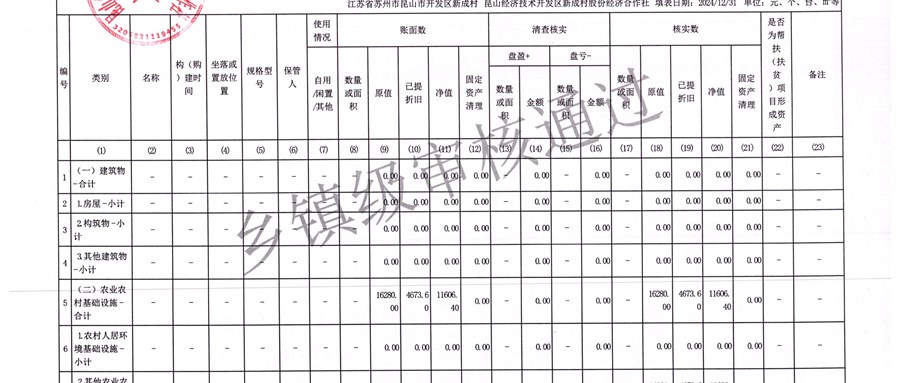 江苏省苏州市昆山市开发区新成村 昆山经济技术开发区新成村股份经济合作社 填表日期：2024/12/31 单位：元、个、台、㎡等
编号 类别 名称 构（购）建时间 坐落或置放位置 规格型号 保管人 使用情况 账面数 清查核实 核实数 是否为帮扶（扶贫）项目形成资产 备注
自用/闲置/其他 数量或面积 原值 已提折旧 净值 固定资产清理 盘盈+ 盘亏- 数量或面积 原值 已提折旧 净值 固定资产清理
数量或面积 金额 数量或面积 金额
(1) (2) (3) (4) (5) (6) (7) (8) (9) (10) (11) (12) (13) (14) (15) (16) (17) (18) (19) (20) (21) (22) (23)
1 （一）建筑物-合计 - - - - - - - 0.00 0.00 0.00 0.00 - 0.00 - 0.00 - 0.00 0.00 0.00 0.00 - -
2 1.房屋-小计 - - - - - - - 0.00 0.00 0.00 0.00 - 0.00 - 0.00 - 0.00 0.00 0.00 0.00 - -
3 2.构筑物-小计 - - - - - - - 0.00 0.00 0.00 0.00 - 0.00 - 0.00 - 0.00 0.00 0.00 0.00 - -
4 3.其他建筑物-小计 - - - - - - - 0.00 0.00 0.00 0.00 - 0.00 - 0.00 - 0.00 0.00 0.00 0.00 - -
5 （二）农业农村基础设施-合计 - - - - - - - 16280.00 4673.60 11606.40 0.00 - 0.00 - 0.00 - 16280.00 4673.60 11606.40 0.00 - -
6 1.农村人居环境基础设施-小计 - - - - - - - 0.00 0.00 0.00 0.00 - 0.00 - 0.00 - 0.00 0.00 0.00 0.00 - -
2.其他农业农
乡镇级审核通过